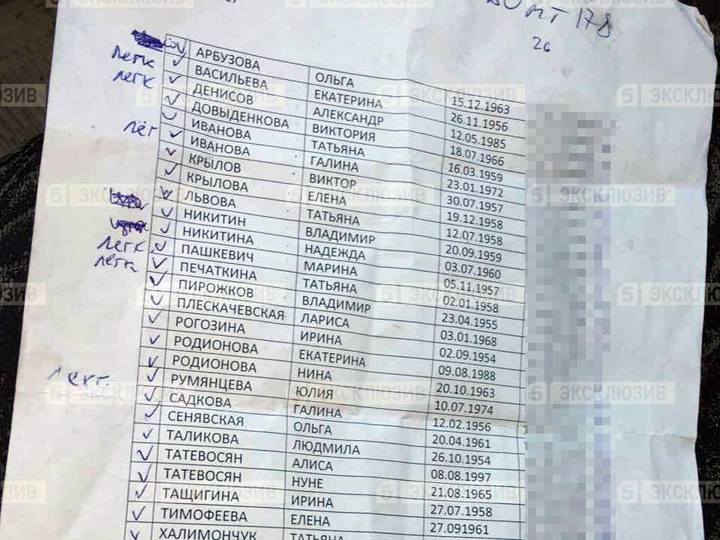 178
26
АРБУЗОВА ОЛЬГА 15.12.1963
легк ВАСИЛЬЕВА ЕКАТЕРИНА 26.11.1956
легк ДЕНИСОВ АЛЕКСАНДР 12.05.1985
ДОВЫДЕНКОВА ВИКТОРИЯ 18.07.1966
лёг ИВАНОВА ТАТЬЯНА 16.03.1959
ИВАНОВА ГАЛИНА 23.01.1972
КРЫЛОВ ВИКТОР 30.07.1957
КРЫЛОВА ЕЛЕНА 19.12.1958
ЛЬВОВА ТАТЬЯНА 12.07.1958
НИКИТИН ВЛАДИМИР 20.09.1959
НИКИТИНА НАДЕЖДА 03.07.1960
легк ПАШКЕВИЧ МАРИНА 05.11.1957
легк ПЕЧАТКИНА ТАТЬЯНА 02.01.1958
ПИРОЖКОВ ВЛАДИМИР 23.04.1955
ПЛЕСКАЧЕВСКАЯ ЛАРИСА 03.01.1968
РОГОЗИНА ИРИНА 02.09.1954
РОДИОНОВА ЕКАТЕРИНА 09.08.1988
РОДИОНОВА НИНА 20.10.1963
РУМЯНЦЕВА ЮЛИЯ 10.07.1974
САДКОВА ГАЛИНА 12.02.1956
СЕНЯВСКАЯ ОЛЬГА 20.04.1961
ТАЛИКОВА ЛЮДМИЛА 26.10.1954
ТАТЕВОСЯН АЛИСА 08.08.1997
ТАТЕВОСЯН НУНЕ 21.08.1965
ТАЩИГИНА ИРИНА 27.07.1958
ТИМОФЕЕВА ЕЛЕНА 27.091961
ХАЛИМОНЧУК ТАТЬЯНА
5 ЭКСКЛЮЗИВ